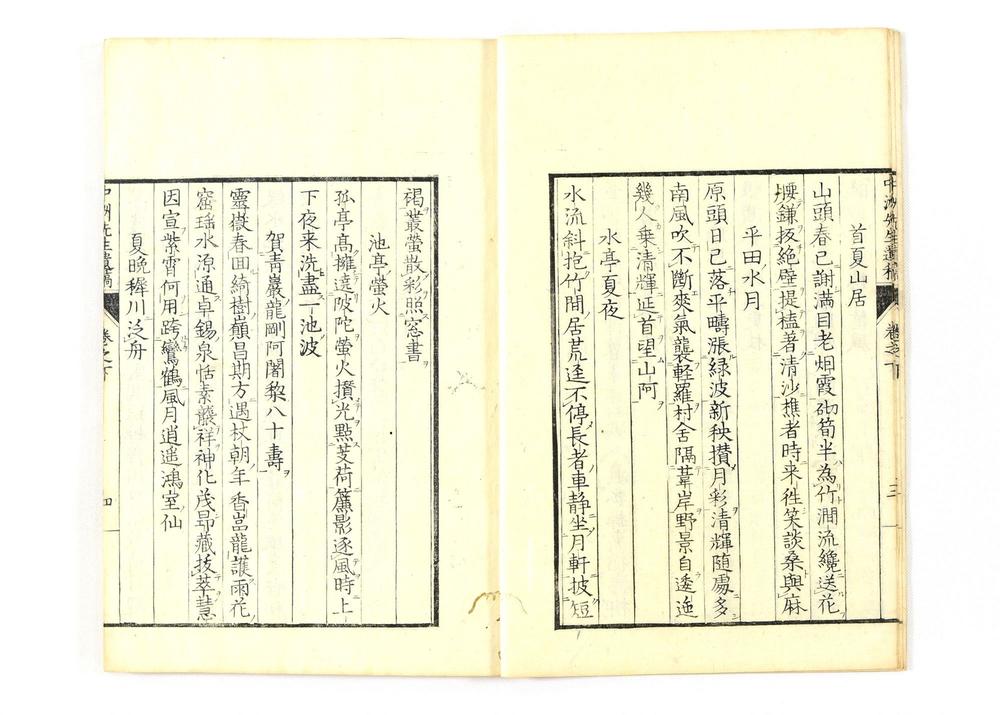 首夏山居
山頭春已謝滿目老烟霞砌筍半為竹澗流纔送花
腰鎌抜絶壁提榼著清沙樵者時来徃笑談桑與麻
平田水月
原頭日已落平疇漲緑波新秧攢月彩清輝隨處多
南風吹不斷來氣襲軽羅村舎隔葦岸野景自逶迤
幾人乗清輝延首望山阿
水亭夏夜
水流斜抱竹間居荒逕不停長者車静坐月軒披短
褐叢螢散彩照窓書
池亭螢火
孤亭髙擁遠陂陀螢火攢光點芰荷簾影逐風時上
下夜来洗盡一池波
賀青巖龍剛阿闍黎八十壽
靈嶽春回綺樹巓昌期方遇杖朝年香嵓龍護雨花
窟瑶水源通卓錫泉恬素髪祥神化茂昂藏抜萃慧
因宣紫霄何用跨鸞鶴風月逍遥鴻室仙
夏晩穉川泛舟
先生遺稿
卷之下
三
四